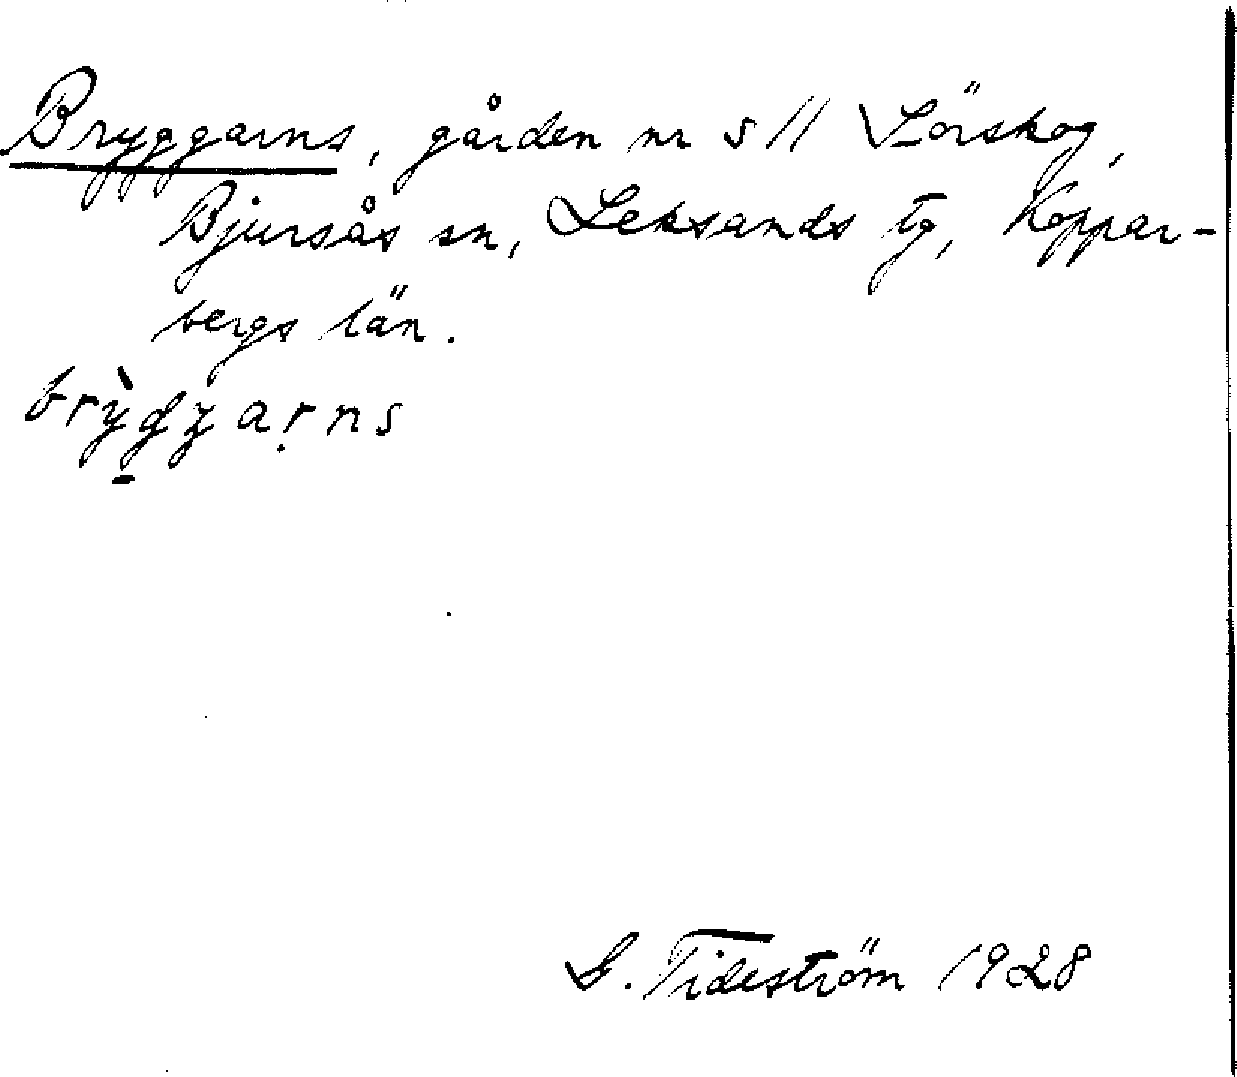 Bryggarns, gården nr 5 11 Lörskog,
Bjursås sn, Leksands tg, Koppar-
bergs län.
brỳ̠gg̡aṛns
G. Tideström 1928